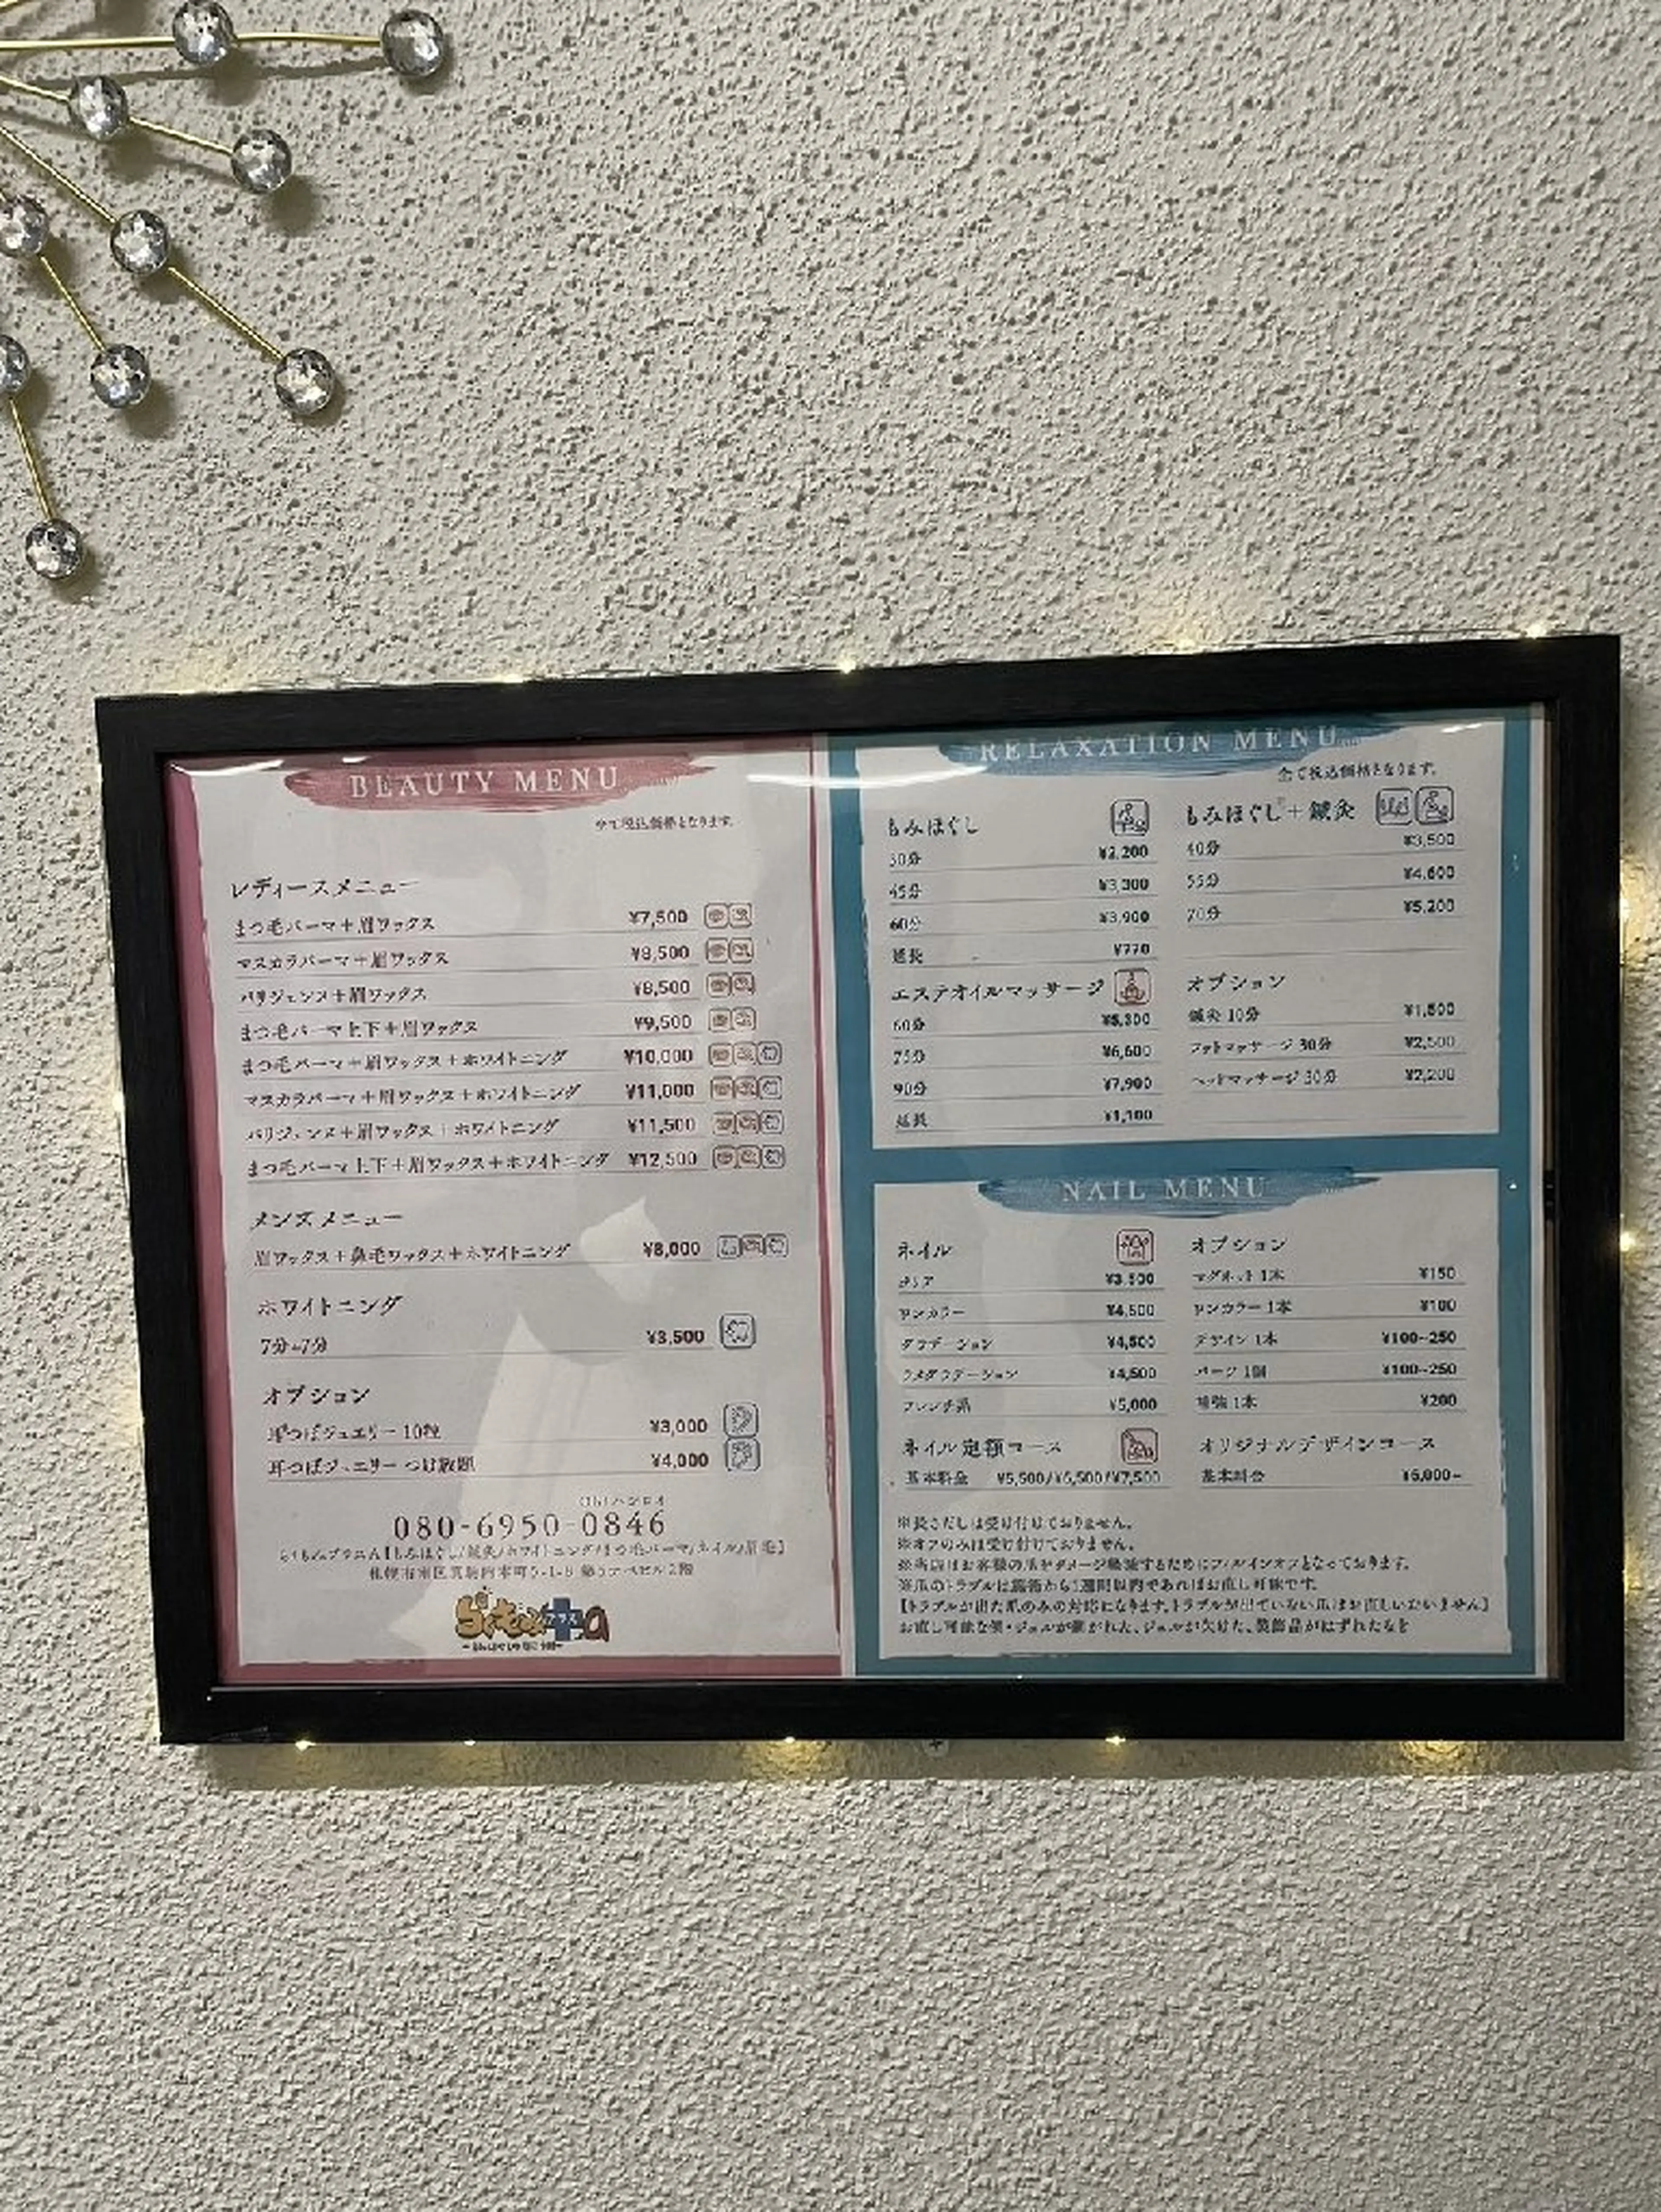 BEAUTY MENU
全て税込価格となります。
レディースメニュー
まつ毛パーマ＋眉ワックス ¥7,500
マスカラパーマ＋眉ワックス ¥8,500
パリジェンヌ＋眉ワックス ¥8,500
まつ毛パーマ上下＋眉ワックス ¥9,500
まつ毛パーマ＋眉ワックス＋ホワイトニング ¥10,000
マスカラパーマ＋眉ワックス＋ホワイトニング ¥11,000
パリジェンヌ＋眉ワックス＋ホワイトニング ¥11,500
まつ毛パーマ上下＋眉ワックス＋ホワイトニング ¥12,500
メンズメニュー
眉ワックス＋鼻毛ワックス＋ホワイトニング ¥8,000
ホワイトニング
7分+7分 ¥3,500
オプション
耳つぼジュエリー 10粒 ¥3,000
耳つぼジュエリー つけ放題 ¥4,000
080-6950-0846
【もみほぐし/鍼灸/ホワイトニング/まつ毛パーマ/ネイル/眉毛】
札幌市南区真駒内本町5-1-8 2階
プラス
RELAXATION MENU
全て税込価格となります。
もみほぐし
30分 ¥2,200
45分 ¥3,300
60分 ¥3,900
延長 ¥770
もみほぐし＋鍼灸
40分 ¥3,500
55分 ¥4,600
70分 ¥5,200
エステオイルマッサージ
60分 ¥5,300
75分 ¥6,600
90分 ¥7,900
延長 ¥1,100
オプション
鍼灸 10分 ¥1,500
フットマッサージ 30分 ¥2,500
ヘッドマッサージ 30分 ¥2,200
NAIL MENU
ネイル
クリア ¥3,500
ワンカラー ¥4,500
グラデーション ¥4,500
ラメグラデーション ¥4,500
フレンチ系 ¥5,000
オプション
マグネット 1本 ¥150
ワンカラー 1本 ¥100
デザイン 1本 ¥100~250
パーツ 1個 ¥100~250
補強 1本 ¥200
ネイル定額コース
基本料金 ¥5,500/¥6,500/¥7,500
オリジナルデザインコース
基本料金 ¥6,000~
※長さだしは受け付けておりません。
※オフのみは受け付けておりません。
※当店はお客様の爪をダメージ軽減するためにフィルインオフとなっております。
※爪のトラブルは施術から1週間以内であればお直し可能です。
【トラブルが出た爪のみの対応になります。トラブルが出ていない爪はお直しいたしません】
お直し可能な例・ジェルが剥がれた、ジェルが欠けた、装飾品がはずれたなど